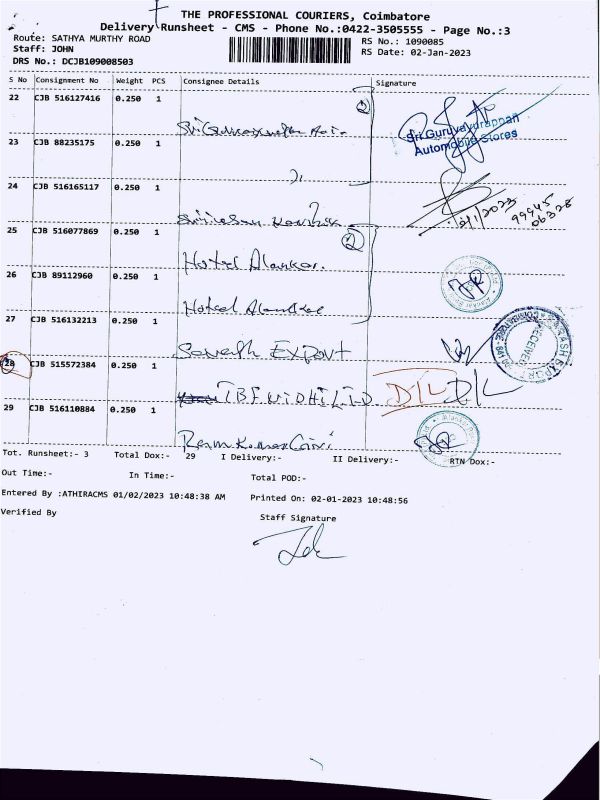 THE PROFESSIONAL COURIERS, Coimbatore
Delivery Runsheet - CMS - Phone No.:0422-3505555 - Page No.:3
Route: SATHYA MURTHY ROAD
RS No.: 1090085
Staff: JOHN
RS Date: 02-Jan-2023
DRS No.: DCJB109008503
S No Consignment No Weight PCS Consignee Details Signature
22 CJB 516127416 0.250 1
Sri Guruvayurappan
Automobile Stores
23 CJB 88235175 0.250 1
24 CJB 516165117 0.250 1
99945
06328
25 CJB 516077869 0.250 1
Hotel Alankar.
26 CJB 89112960 0.250 1
Hotel
27 CJB 516132213 0.250 1
Export
RECEIVED
28 CJB 515572384 0.250 1
NIDHI LTD. D/L D/L
29 CJB 516110884 0.250 1
Ram Kumar
Tot. Runsheet:- 3 Total Dox:- 29 I Delivery:- II Delivery:- RTN Dox:-
Out Time:- In Time:- Total POD:-
Entered By :ATHIRACMS 01/02/2023 10:48:38 AM Printed On: 02-01-2023 10:48:56
Verified By Staff Signature